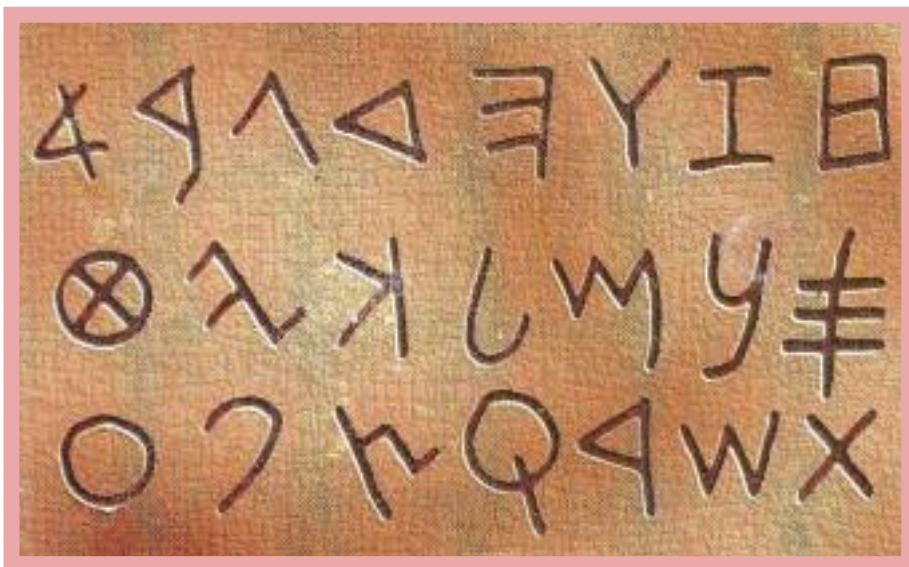 𐤀 𐤁 𐤂 𐤃 𐤄 𐤅 𐤆 𐤇
𐤈 𐤉 𐤊 𐤋 𐤌 𐤍 𐤎
𐤏 𐤐 𐤑 𐤒 𐤓 𐤔 𐤕